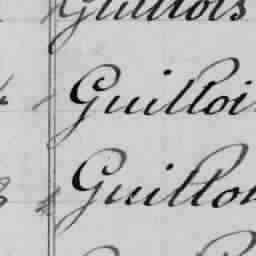 Guillois
Guilloi
Guillo